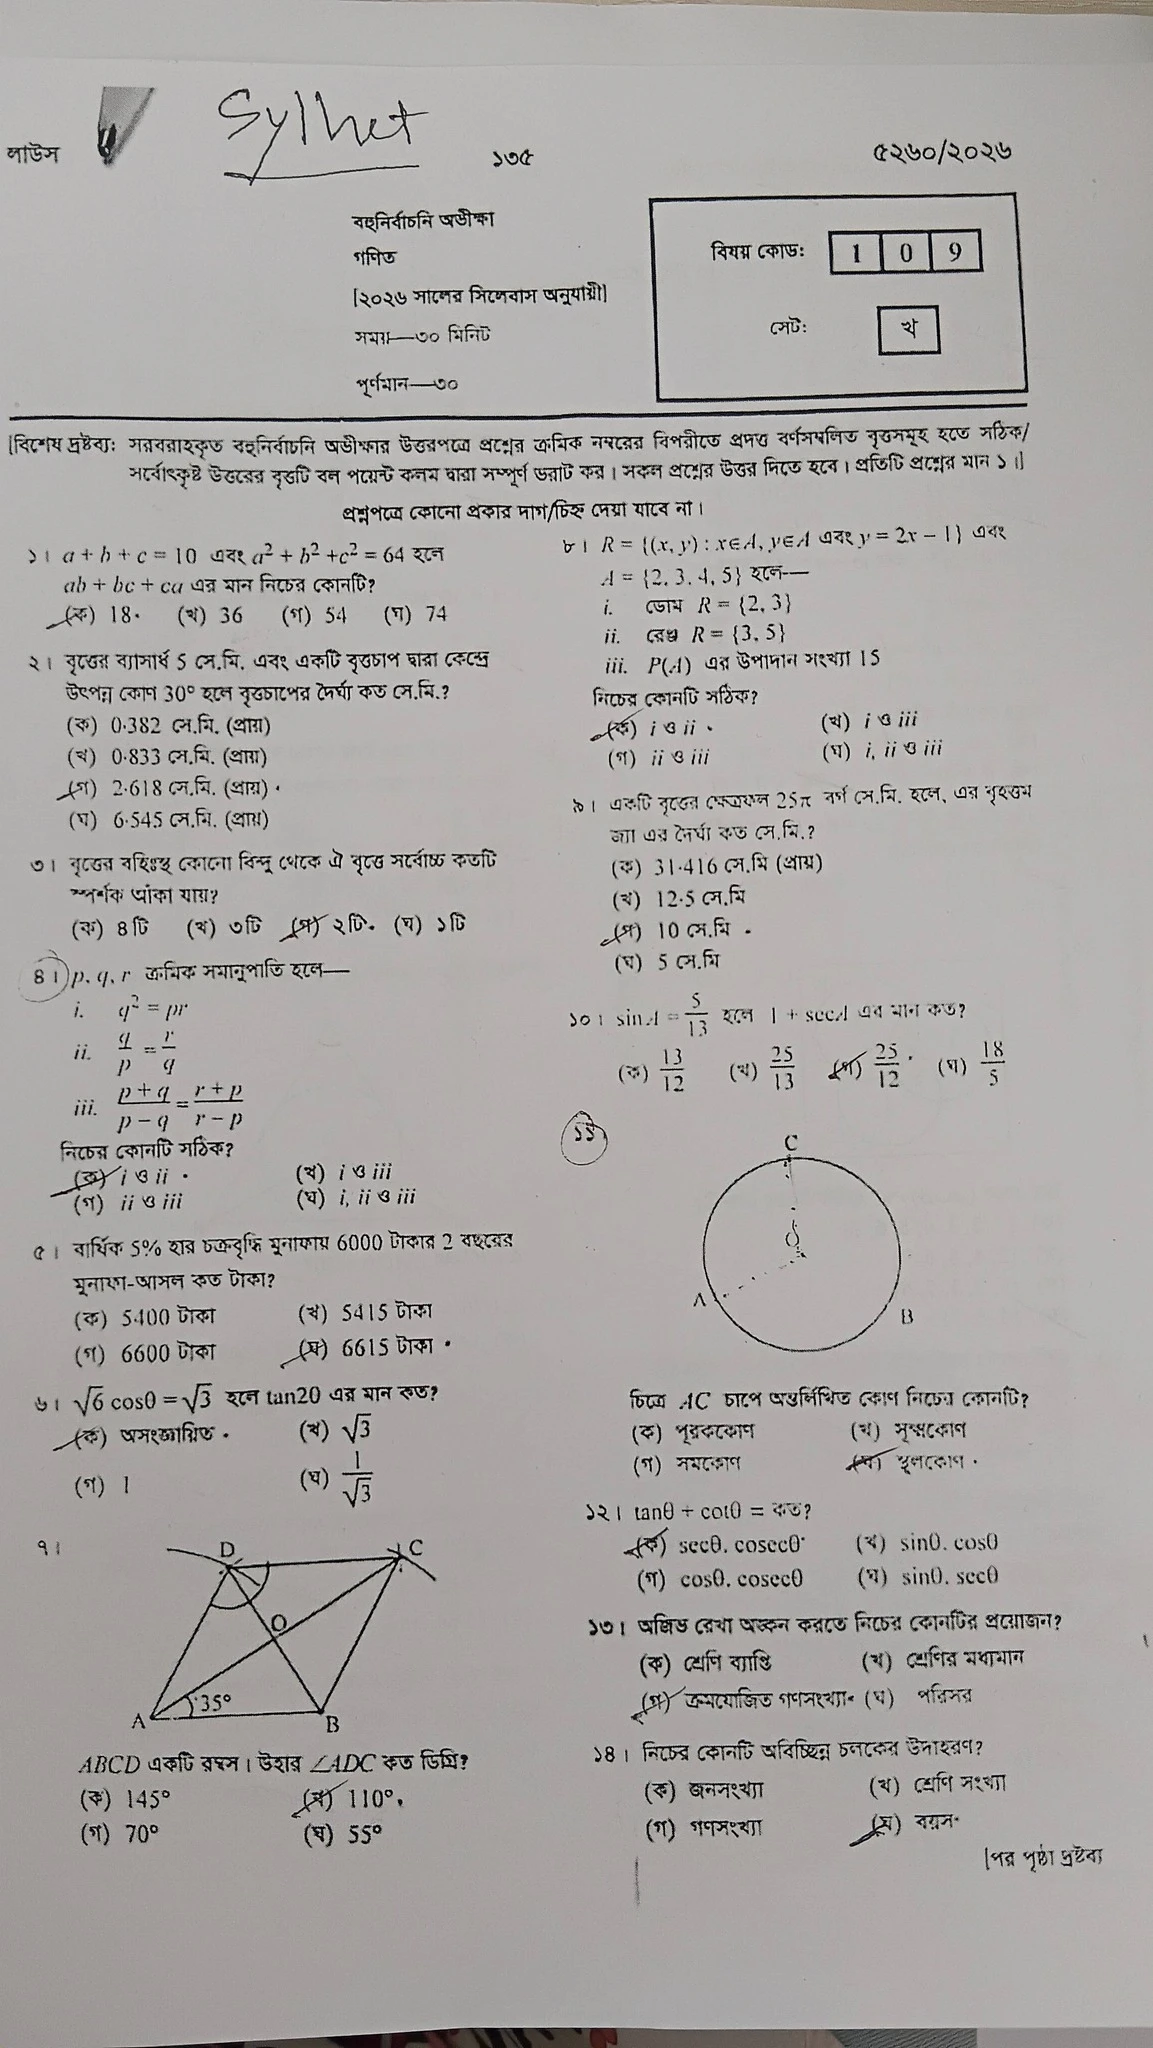 লাউস
Sylhet
১৩৫
৫২৬০/২০২৬
বহুনির্বাচনি অভীক্ষা
গণিত
[২০২৬ সালের সিলেবাস অনুযায়ী]
সময়—৩০ মিনিট
পূর্ণমান—৩০
বিষয় কোড: 1 0 9
সেট: খ
[বিশেষ দ্রষ্টব্য: সরবরাহকৃত বহুনির্বাচনি অভীক্ষার উত্তরপত্রে প্রশ্নের ক্রমিক নম্বরের বিপরীতে প্রদত্ত বর্ণসম্বলিত বৃত্তসমূহ হতে সঠিক/
সর্বোৎকৃষ্ট উত্তরের বৃত্তটি বল পয়েন্ট কলম দ্বারা সম্পূর্ণ ভরাট কর। সকল প্রশ্নের উত্তর দিতে হবে। প্রতিটি প্রশ্নের মান ১।]
প্রশ্নপত্রে কোনো প্রকার দাগ/চিহ্ন দেয়া যাবে না।
১। a + b + c = 10 এবং a² + b² +c² = 64 হলে
ab + bc + ca এর মান নিচের কোনটি?
(ক) 18 (খ) 36 (গ) 54 (ঘ) 74
২। বৃত্তের ব্যাসার্ধ 5 সে.মি. এবং একটি বৃত্তচাপ দ্বারা কেন্দ্রে
উৎপন্ন কোণ 30° হলে বৃত্তচাপের দৈর্ঘ্য কত সে.মি.?
(ক) 0·382 সে.মি. (প্রায়)
(খ) 0·833 সে.মি. (প্রায়)
(গ) 2·618 সে.মি. (প্রায়)
(ঘ) 6·545 সে.মি. (প্রায়)
৩। বৃত্তের বহিঃস্থ কোনো বিন্দু থেকে ঐ বৃত্তে সর্বোচ্চ কতটি
স্পর্শক আঁকা যায়?
(ক) ৪টি (খ) ৩টি (গ) ২টি (ঘ) ১টি
৪। p, q, r ক্রমিক সমানুপাতি হলে—
i. q² = pr
ii. q/p = r/q
iii. (p+q)/(p−q) = (r+p)/(r−p)
নিচের কোনটি সঠিক?
(ক) i ও ii (খ) i ও iii
(গ) ii ও iii (ঘ) i, ii ও iii
৫। বার্ষিক 5% হার চক্রবৃদ্ধি মুনাফায় 6000 টাকার 2 বছরের
মুনাফা-আসল কত টাকা?
(ক) 5400 টাকা (খ) 5415 টাকা
(গ) 6600 টাকা (ঘ) 6615 টাকা
৬। √6 cosθ = √3 হলে tan2θ এর মান কত?
(ক) অসংজ্ঞায়িত (খ) √3
(গ) 1 (ঘ) 1/√3
৭।
D C
O
35°
A B
ABCD একটি রম্বস। উহার ∠ADC কত ডিগ্রি?
(ক) 145° (খ) 110°
(গ) 70° (ঘ) 55°
৮। R = {(x, y) : x∈A, y∈A এবং y = 2x − 1} এবং
A = {2, 3, 4, 5} হলে—
i. ডোম R = {2, 3}
ii. রেঞ্জ R = {3, 5}
iii. P(A) এর উপাদান সংখ্যা 15
নিচের কোনটি সঠিক?
(ক) i ও ii (খ) i ও iii
(গ) ii ও iii (ঘ) i, ii ও iii
৯। একটি বৃত্তের ক্ষেত্রফল 25π বর্গ সে.মি. হলে, এর বৃহত্তম
জ্যা এর দৈর্ঘ্য কত সে.মি.?
(ক) 31·416 সে.মি (প্রায়)
(খ) 12·5 সে.মি
(গ) 10 সে.মি
(ঘ) 5 সে.মি
১০। sinA = 5/13 হলে 1 + secA এর মান কত?
(ক) 13/12 (খ) 25/13 (গ) 25/12 (ঘ) 18/5
১১
C
A
B
চিত্রে AC চাপে অন্তর্লিখিত কোণ নিচের কোনটি?
(ক) পূরককোণ (খ) সূক্ষ্মকোণ
(গ) সমকোণ (ঘ) স্থূলকোণ
১২। tanθ + cotθ = কত?
(ক) secθ. cosecθ (খ) sinθ. cosθ
(গ) cosθ. cosecθ (ঘ) sinθ. secθ
১৩। অজিভ রেখা অঙ্কন করতে নিচের কোনটির প্রয়োজন?
(ক) শ্রেণি ব্যাপ্তি (খ) শ্রেণির মধ্যমান
(গ) ক্রমযোজিত গণসংখ্যা (ঘ) পরিসর
১৪। নিচের কোনটি অবিচ্ছিন্ন চলকের উদাহরণ?
(ক) জনসংখ্যা (খ) শ্রেণি সংখ্যা
(গ) গণসংখ্যা (ঘ) বয়স
[পর পৃষ্ঠা দ্রষ্টব্য